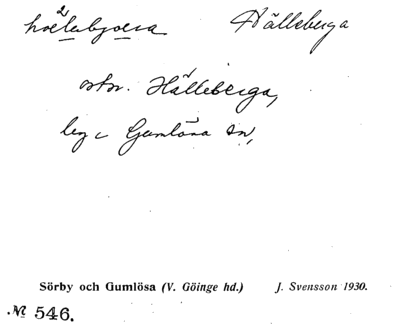 hvälebjæra Hälleberga
ortn. Hälleberga,
by i Gumlösa sn,
Sörby och Gumlösa (V. Göinge hd.) J. Svensson 1930.
№ 546.